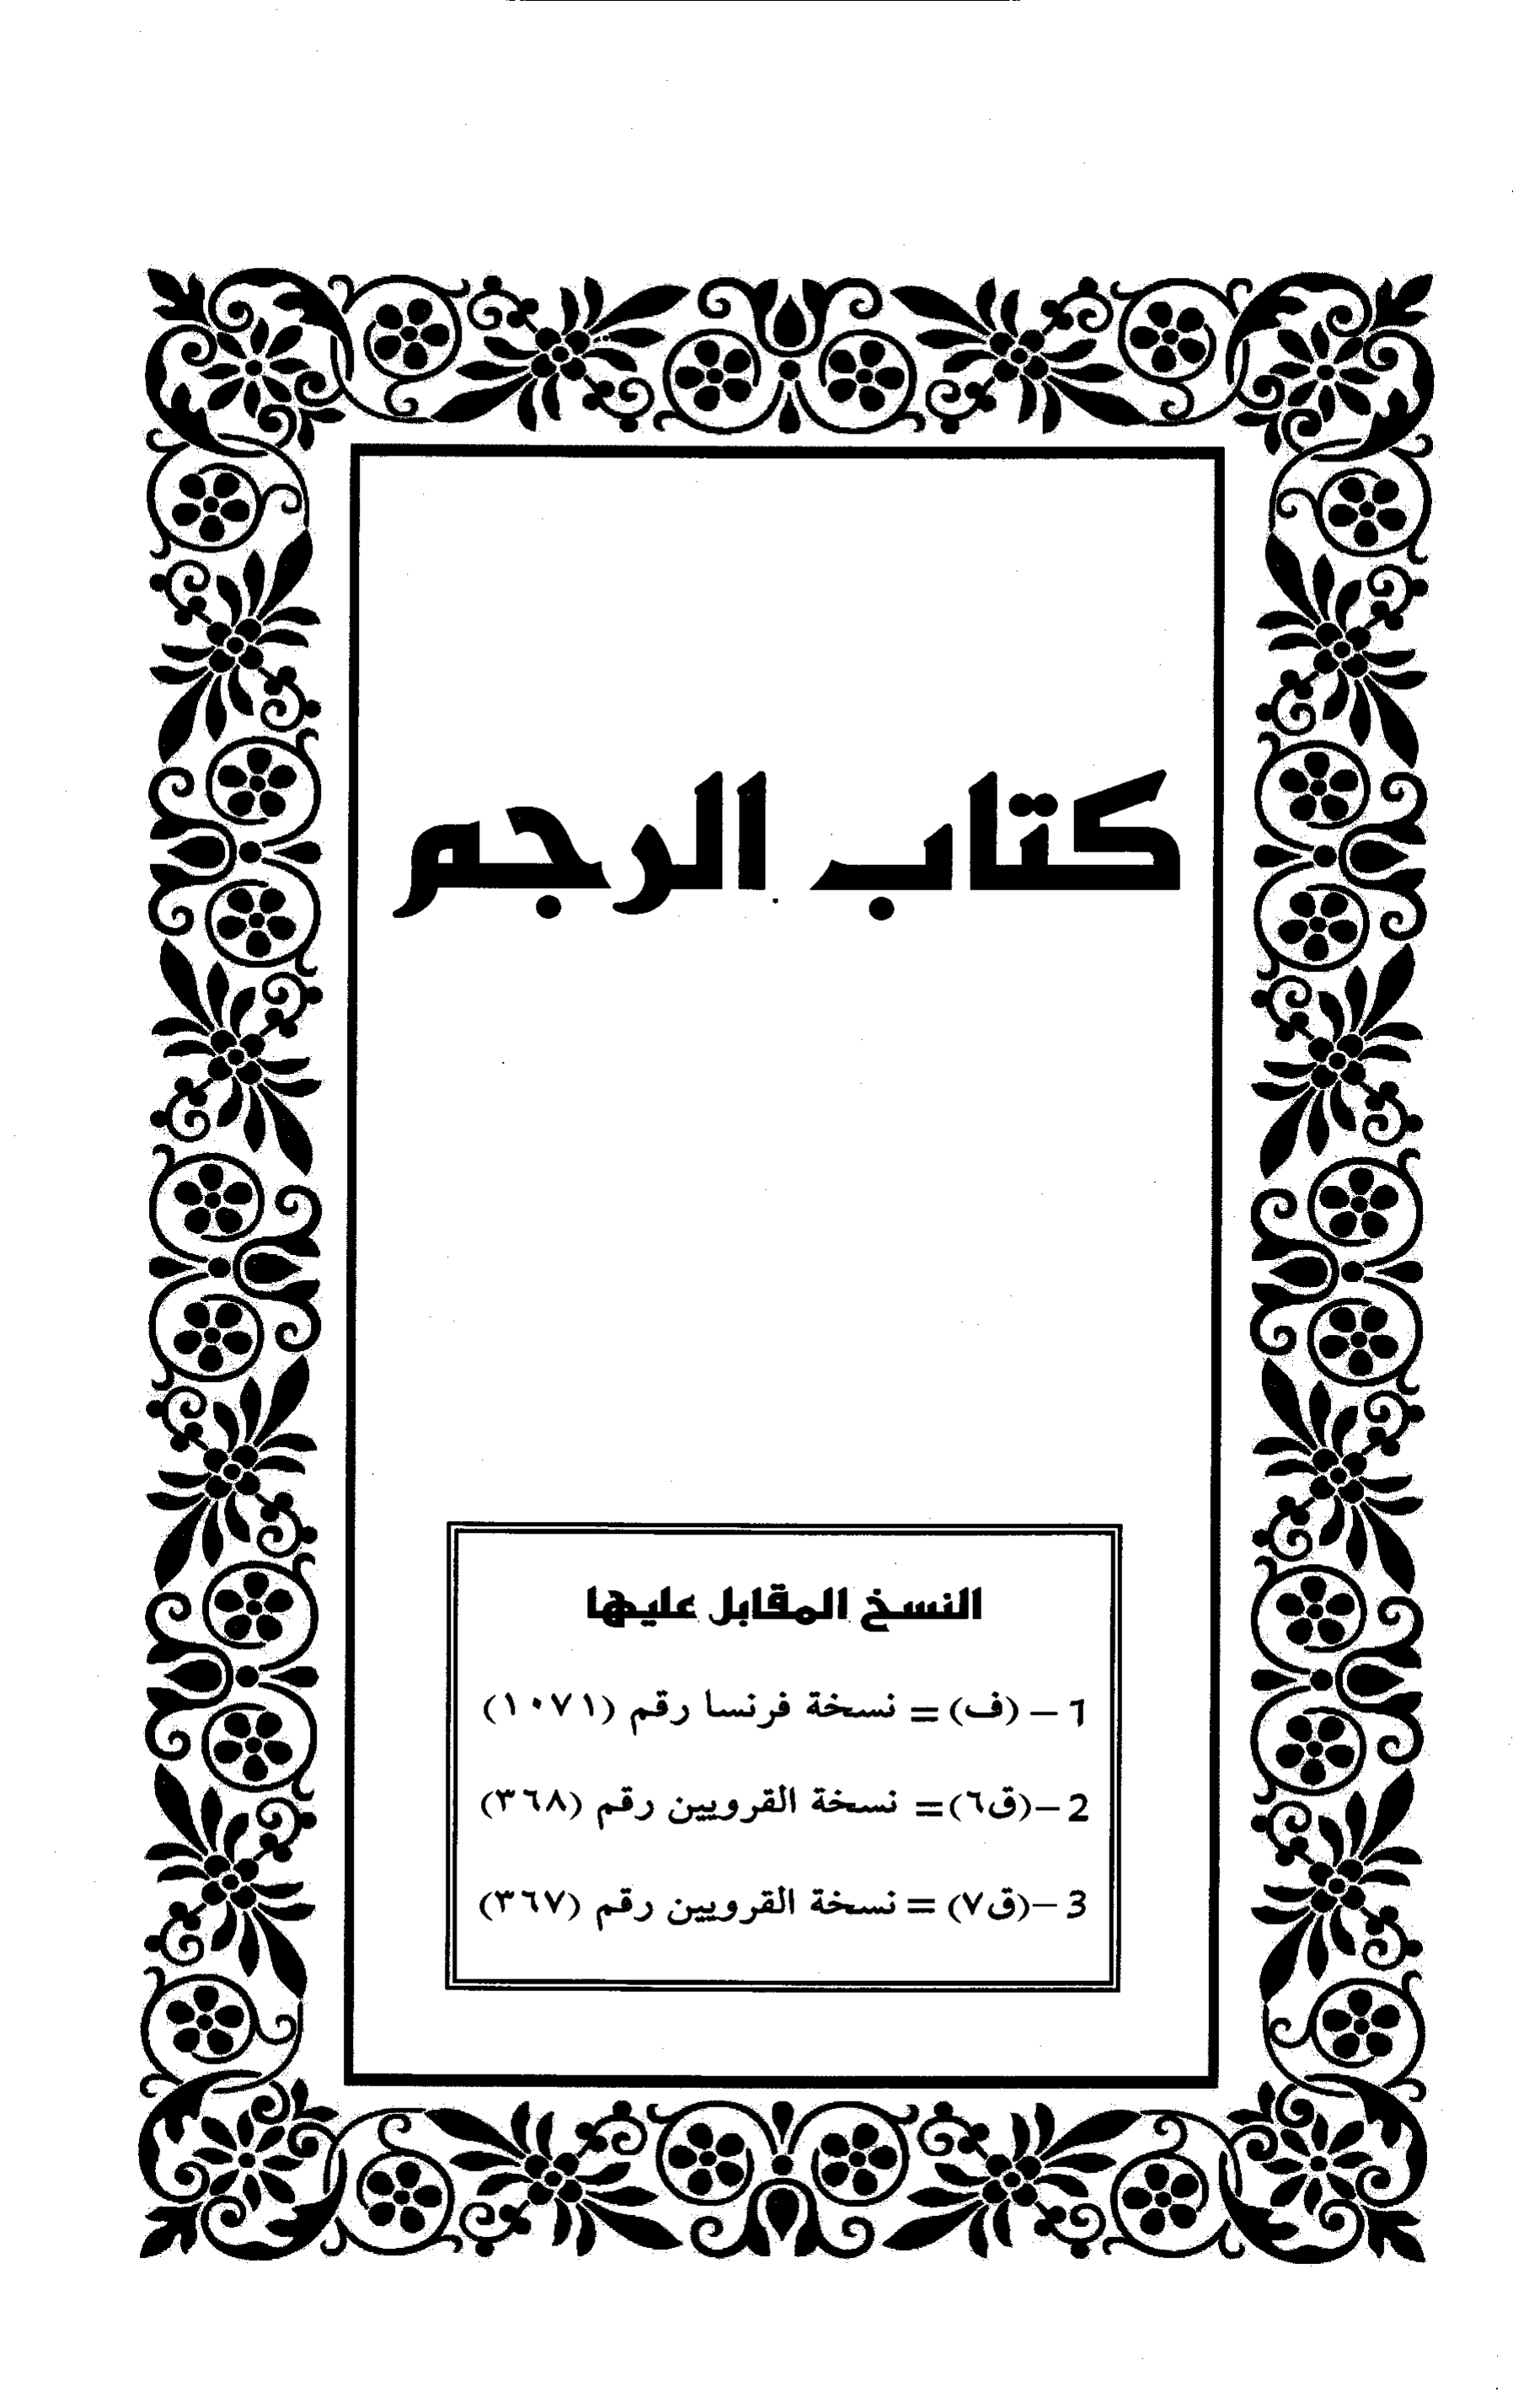 كتاب الرجم
النسخ المقابل عليها
1 – (ف) = نسخة فرنسا رقم (١٠٧١)
2 –(ق٦)= نسخة القرويين رقم (٣٦٨)
3 –(ق٧) = نسخة القرويين رقم (٣٦٧)